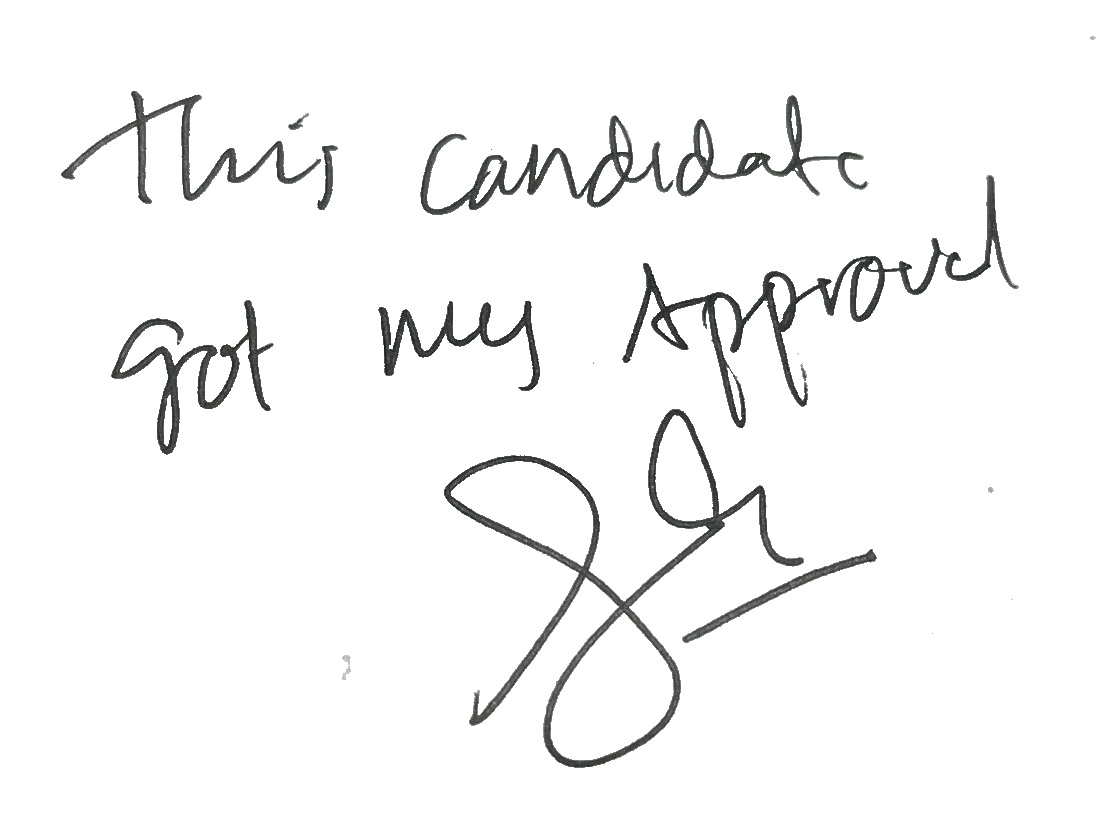 This candidate
got my Approval